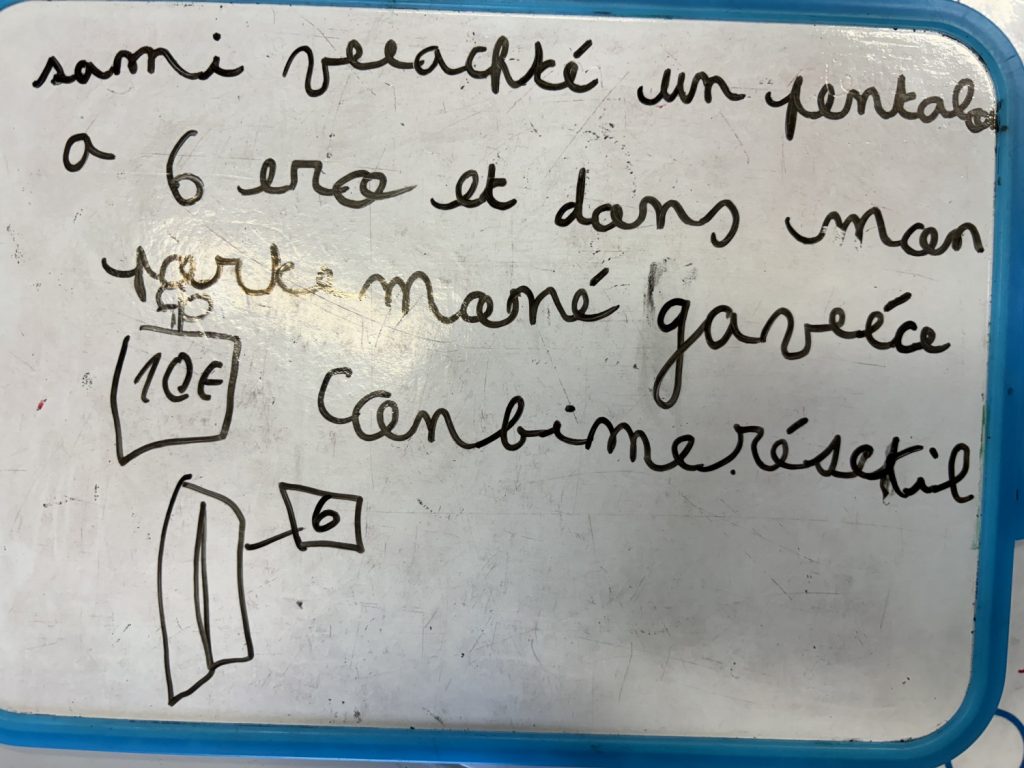 sami veeachté un pentalo
a 6 ero et dans mon
porte moné gaveéo
10€ Conbimerésetil
6